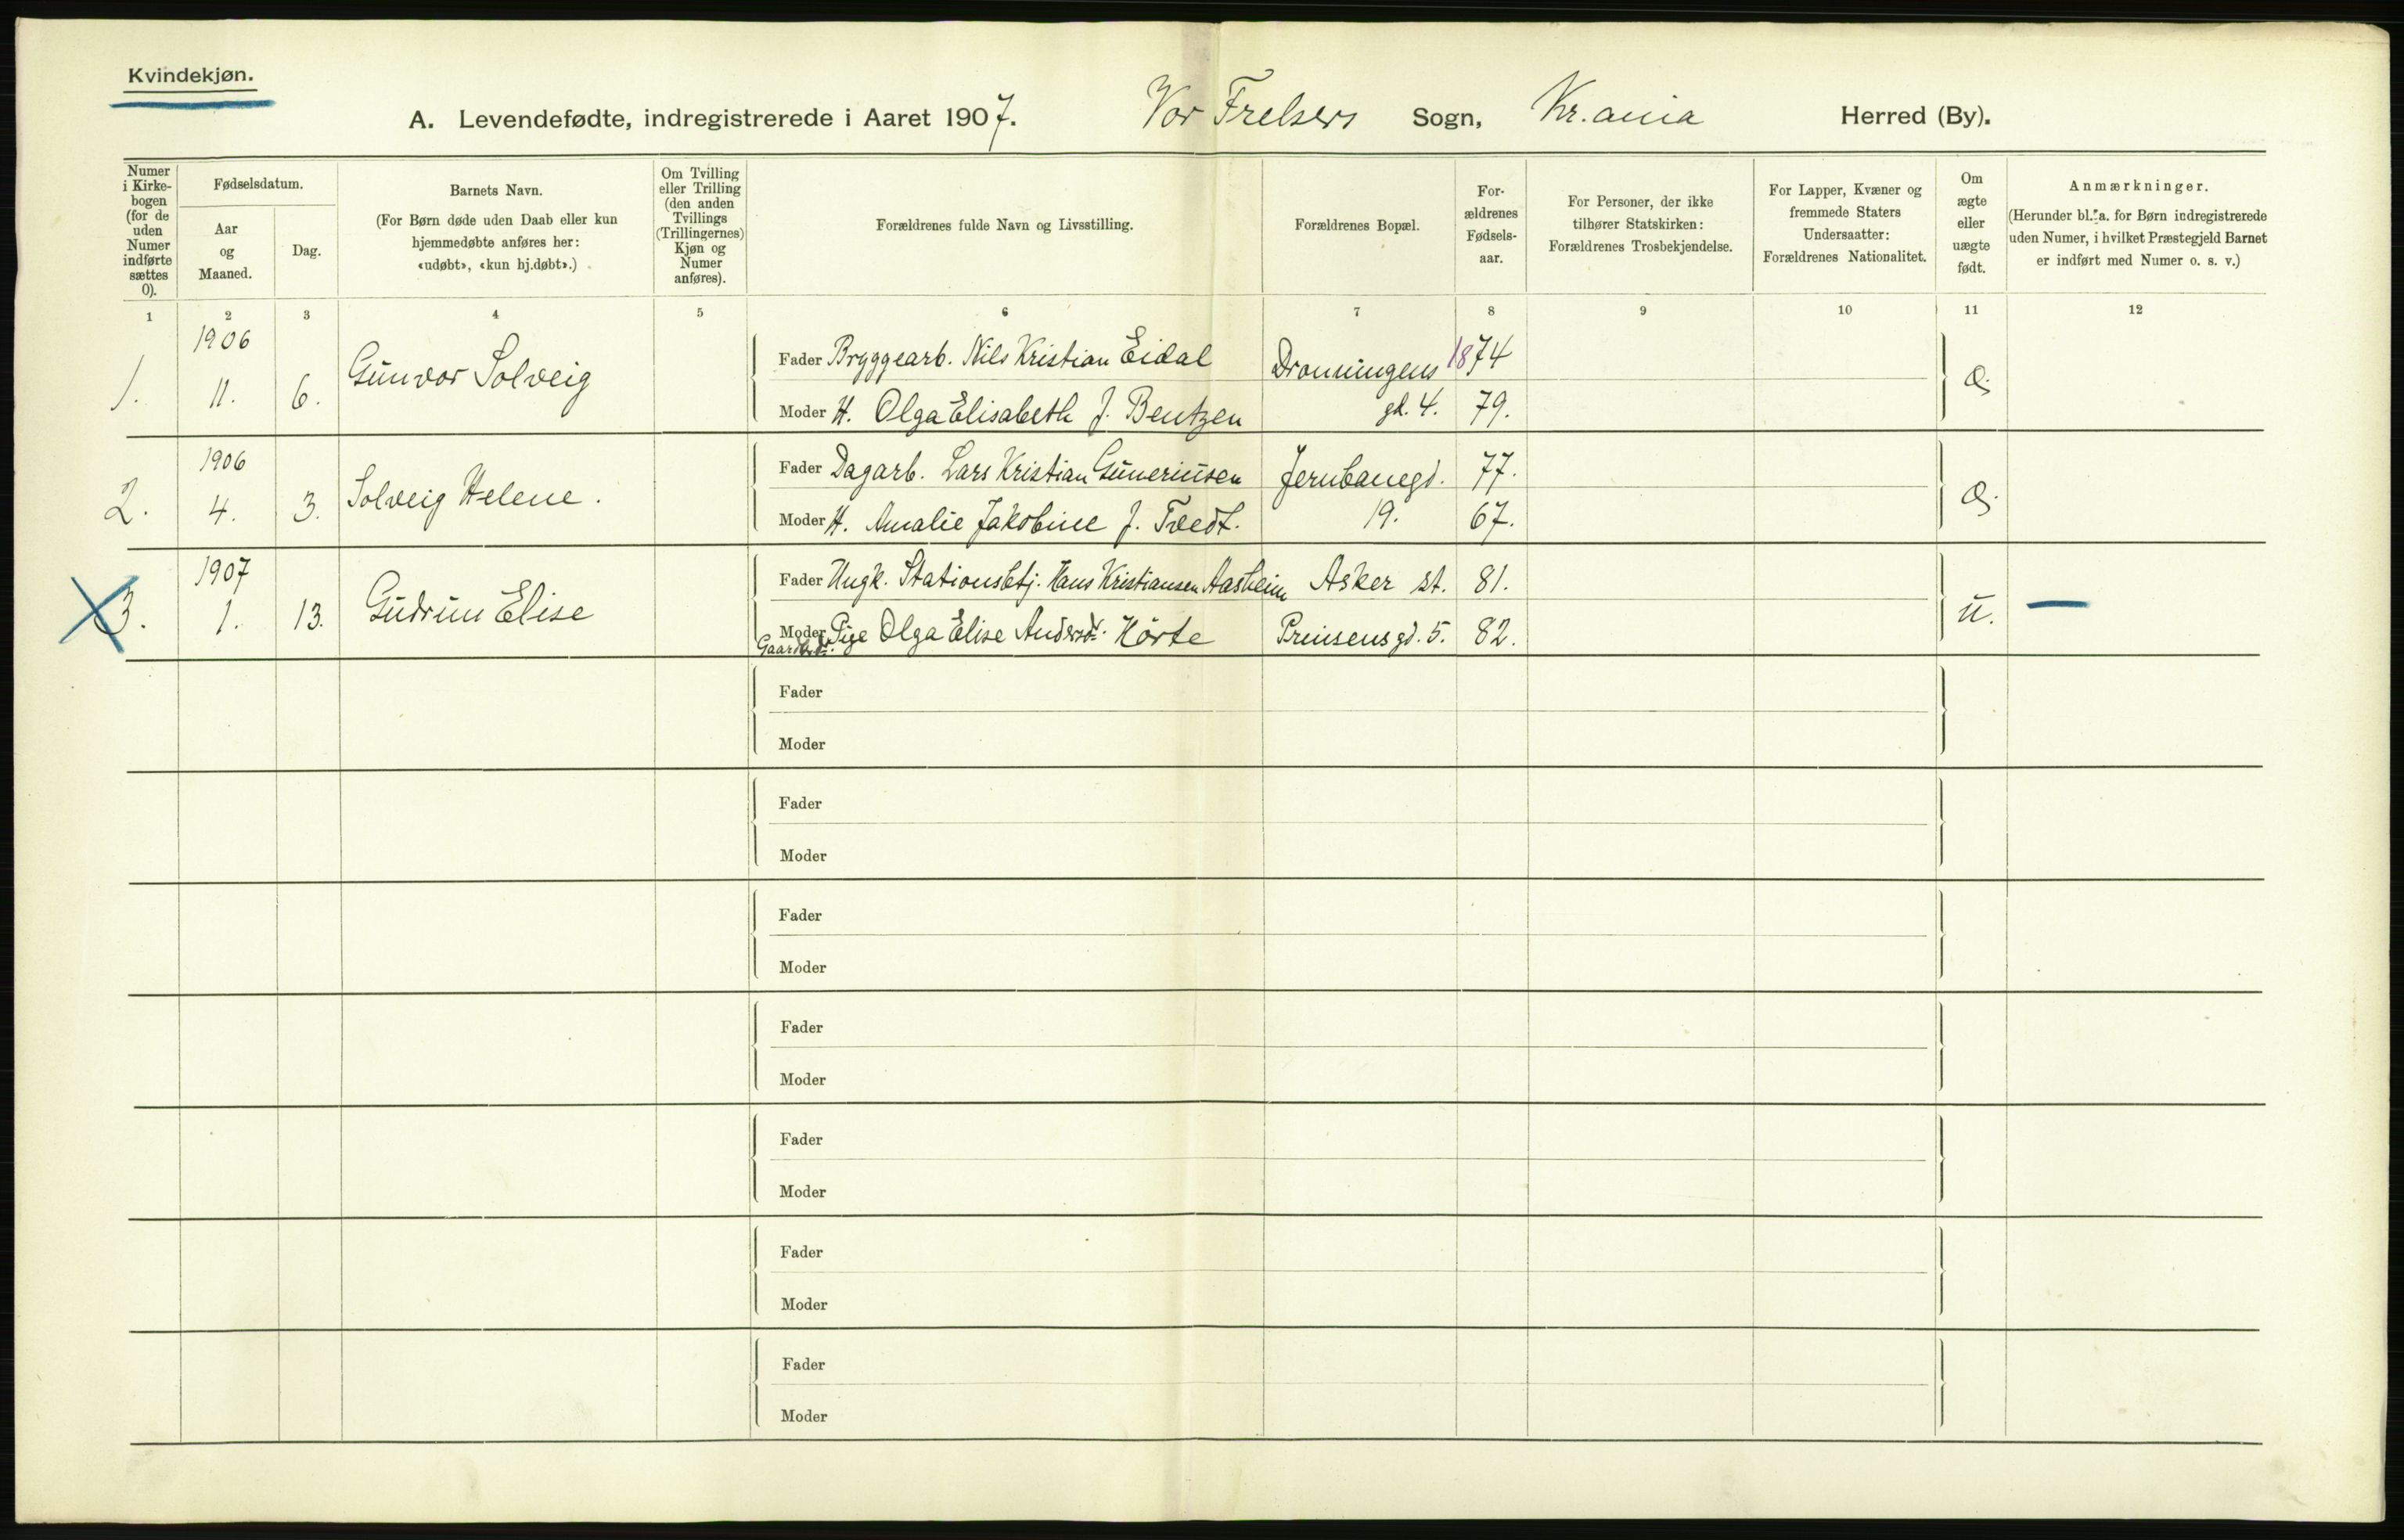 Kvindekjøn.
A. Levendefødte, indregistrerede i Aaret 1907. Vor Frelsers Sogn, Kr.ania Herred (By).
Numer i Kirke-bogen (for de uden Numer indførte sættes 0).
Fødselsdatum.
Aar og Maaned.
Dag.
Barnets Navn.
(For Børn døde uden Daab eller kun
hjemmedøbte anføres her:
«udøbt», «kun hj.døbt».)
Om Tvilling
eller Trilling
(den anden
Tvillings
(Trillingernes)
Kjøn og
Numer
anføres).
Forældrenes fulde Navn og Livsstilling.
Forældrenes Bopæl.
For-
ældrenes
Fødsels-
aar.
For Personer, der ikke
tilhører Statskirken:
Forældrenes Trosbekjendelse.
For Lapper, Kvæner og
fremmede Staters
Undersaatter:
Forældrenes Nationalitet.
Om
ægte
eller
uægte
født.
Anmærkninger.
(Herunder bl. a. for Børn indregistrerede
uden Numer, i hvilket Præstegjeld Barnet
er indført med Numer o. s. v.)
1 2 3 4 5 6 7 8 9 10 11 12
1906
1. 11. 6. Gunvor Solveig
Fader Bryggearb. Nils Kristian Eidal Dronningens 1874
Moder H. Olga Elisabeth f. Bentzen gd. 4. 79.
æ.
1906
2. 4. 3. Solveig Helene.
Fader Dagarb. Lars Kristian Guneriusen Jernbanegd. 77.
Moder H. Amalie Jakobine f. Tvedt. 19. 67.
æ.
1907
3. 1. 13. Gudrun Elise
Fader Ungk. Stationsbtj. Hans Kristiansen Aasheim Asker st. 81.
Moder Pige Olga Elise Andersd. Hörte Prinsensgd. 5. 82.
u. —
Fader
Moder
Fader
Moder
Fader
Moder
Fader
Moder
Fader
Moder
Fader
Moder
Fader
Moder